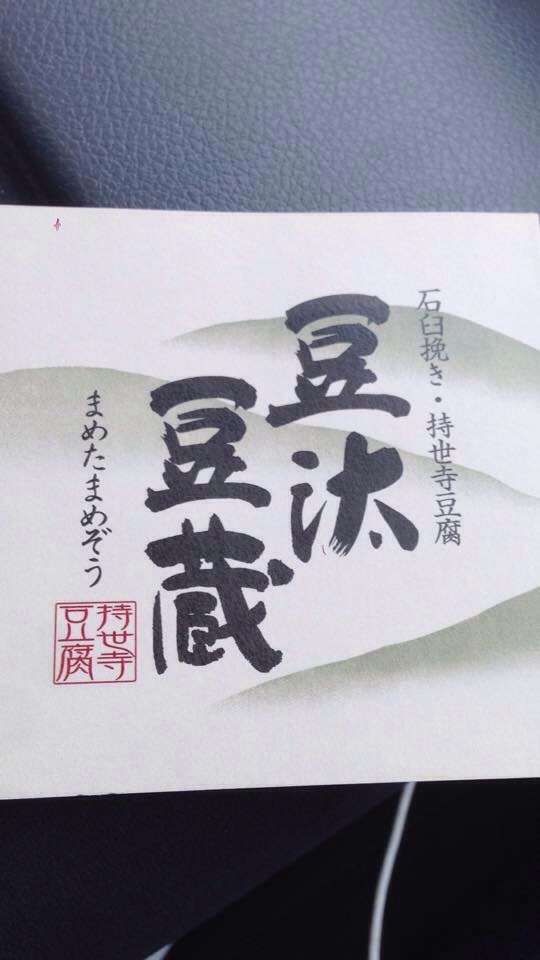 石臼挽き・持世寺豆腐
豆汰
豆蔵
まめたまめぞう
持世寺
豆腐